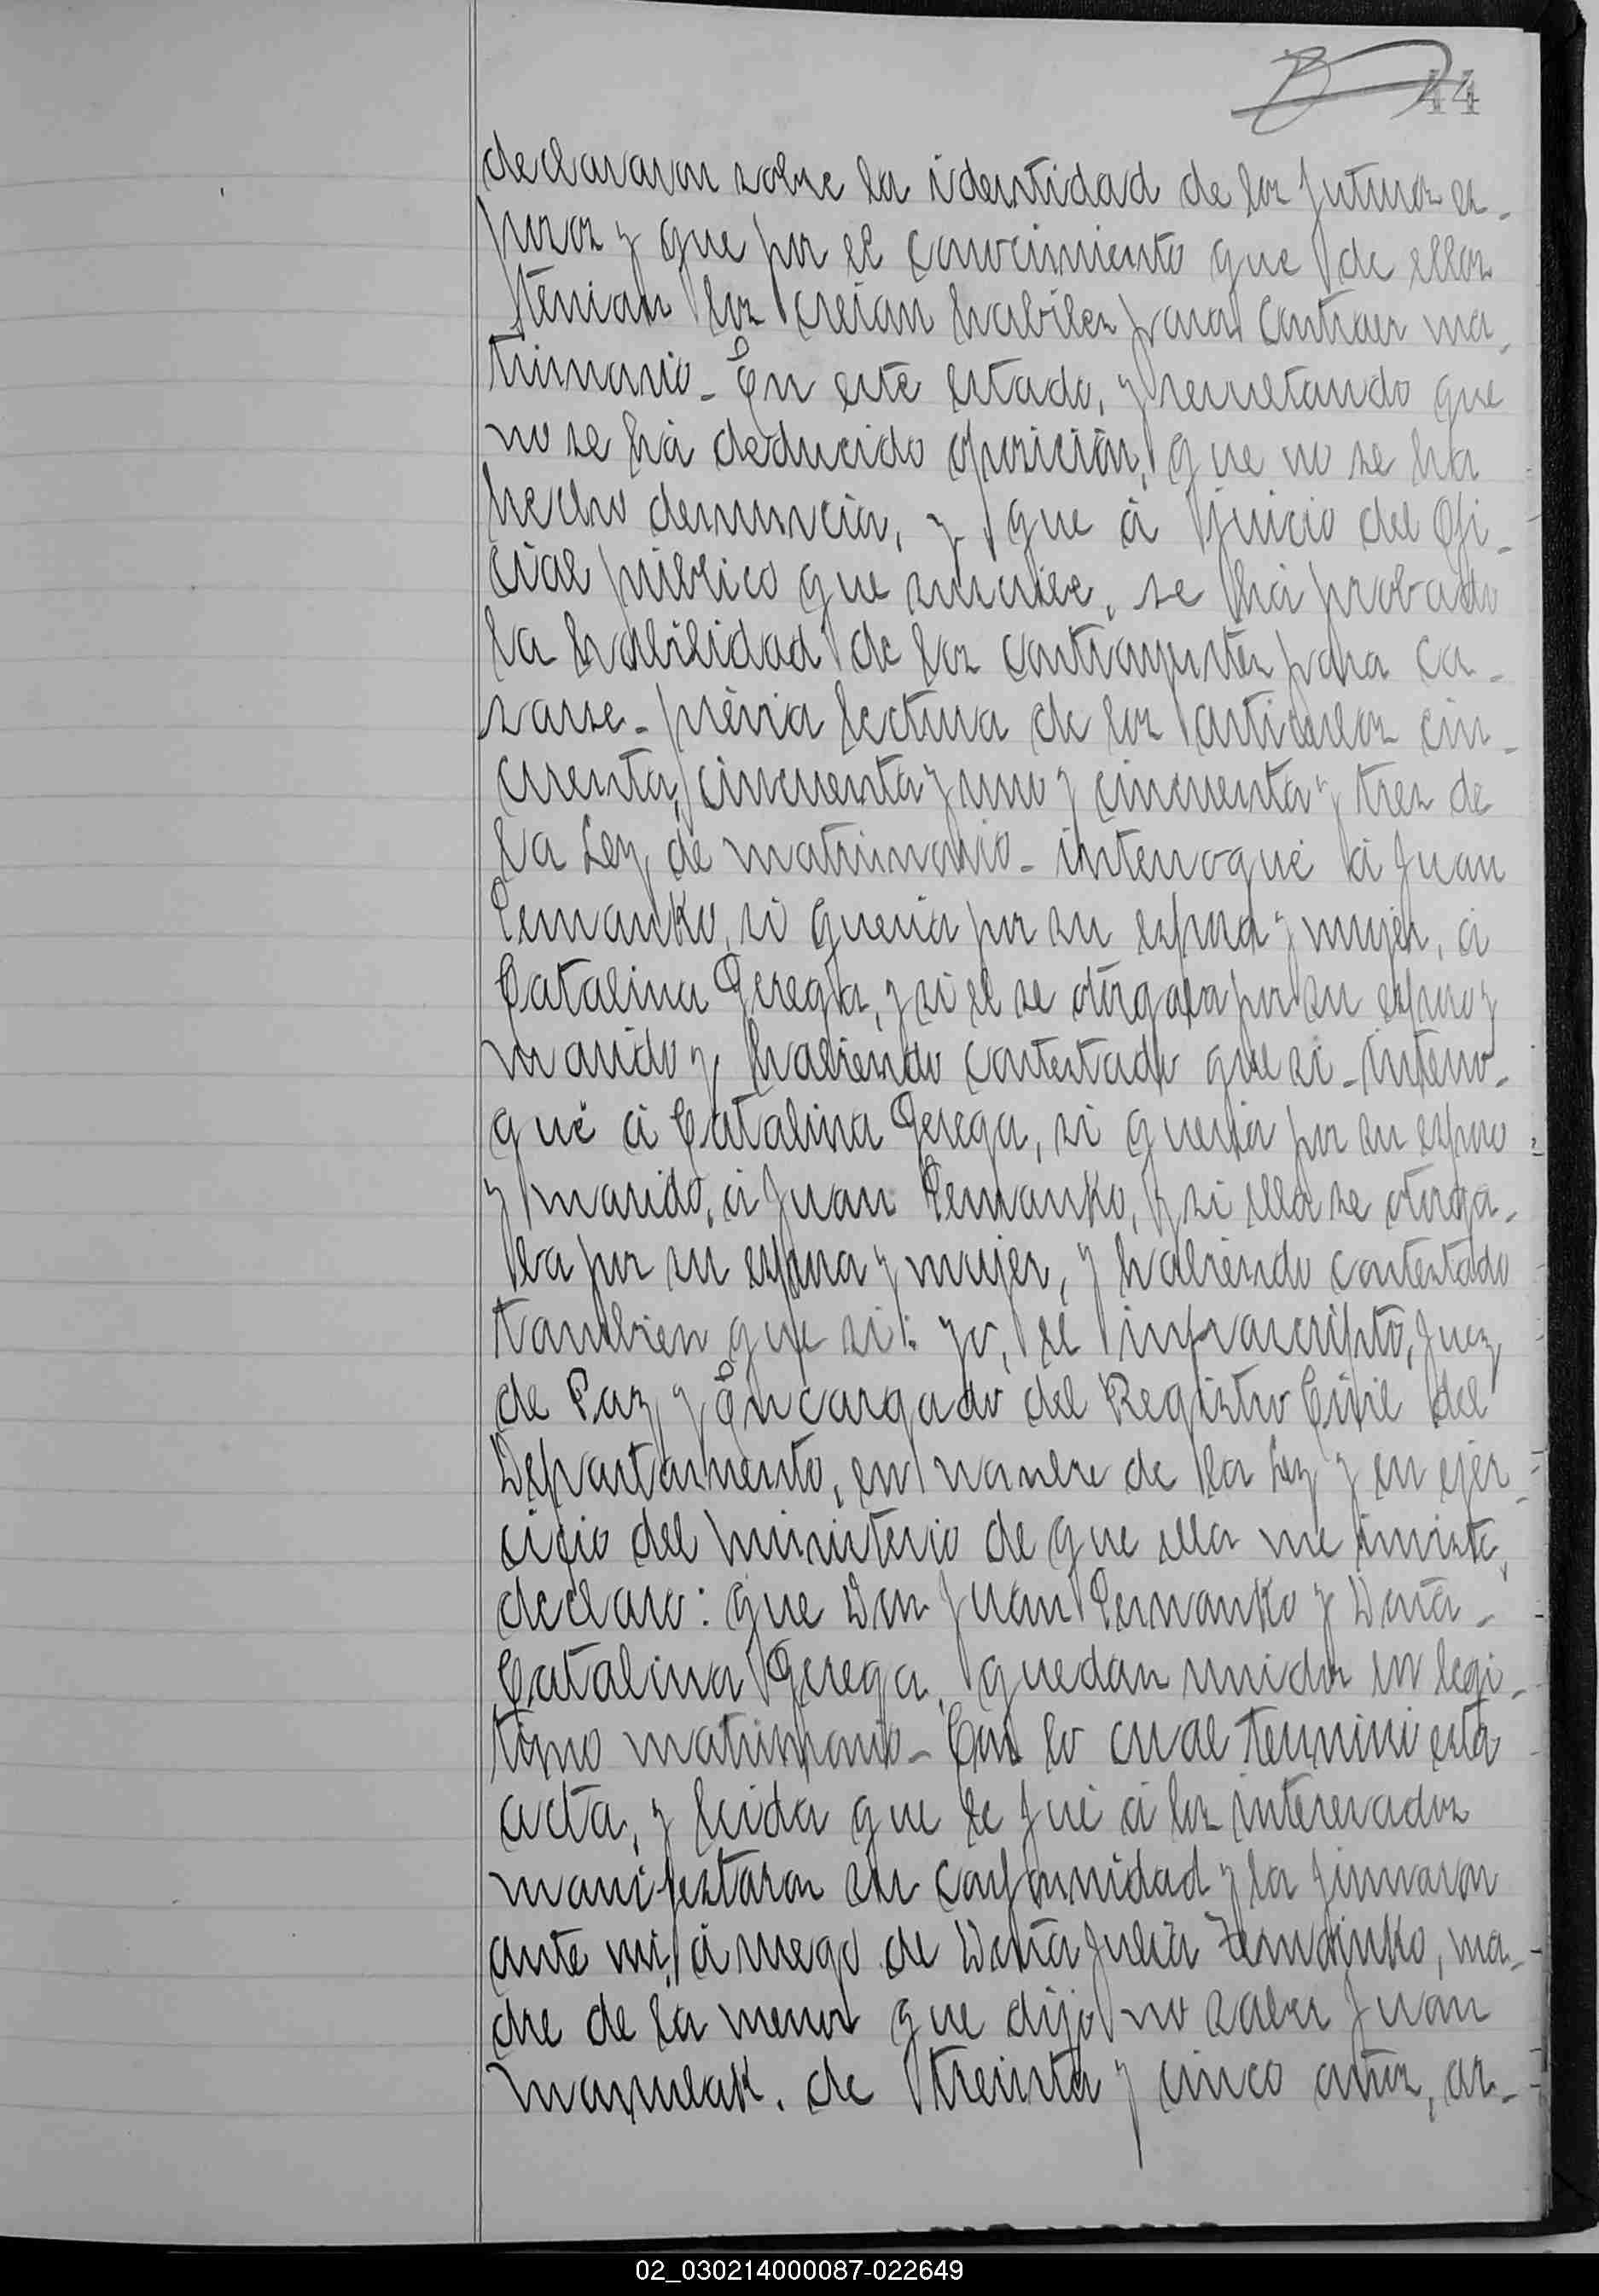 44
declararon sobre la identidad de los futuros es-
posos y que por el conocimiento que de ellos
tenian los creian habiles para contraer ma-
trimonio - En este estado, y resultando que
no se há deducido oposición, que no se ha
hecho denuncia, y que á juicio del Ofi-
cial público que suscribe, se há probado
la habilidad de los contrayentes para ca-
sarse - prévia lectura de los articulos cin-
cuenta, cincuenta y uno y cincuenta y tres de
la Ley de matrimonio - interrogué á Juan
Permanko, si queria por su esposa y mujer, á
Catalina Gerega, y si el se otorgaba por su esposo y
marido y habiendo contestado que si - interro-
gué á Catalina Gerega, si queria por su esposo
y marido, á Juan Permanko, y si ella se otorga-
ba por su esposa y mujer, y habiendo contestado
tambien que si: yo, el infrascripto, Juez
de Paz y Encargado del Registro Civil del
Departamento, en nombre de la Ley y en ejer-
cicio del ministerio de que ella me inviste,
declaro: que Don Juan Permanko y Doña
Catalina Gerega, quedan unidos en legi-
timo matrimonio - Con lo cual terminó esta
acta, y leida que le fué á los interesados
manifestaron su conformidad y la firmaron
ante mi, á ruego de Doña Julia, ma-
dre de la menor que dijo no saber Juan
de treinta y cinco años, ar-
02_030214000087-022649